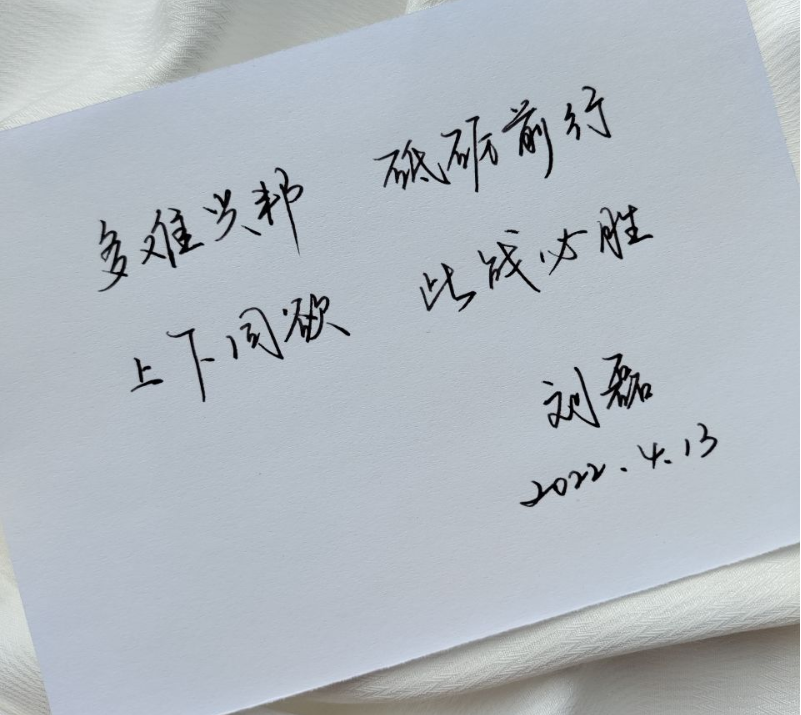 多难兴邦 砥砺前行
上下同欲 此战必胜
刘磊
2022.4.13